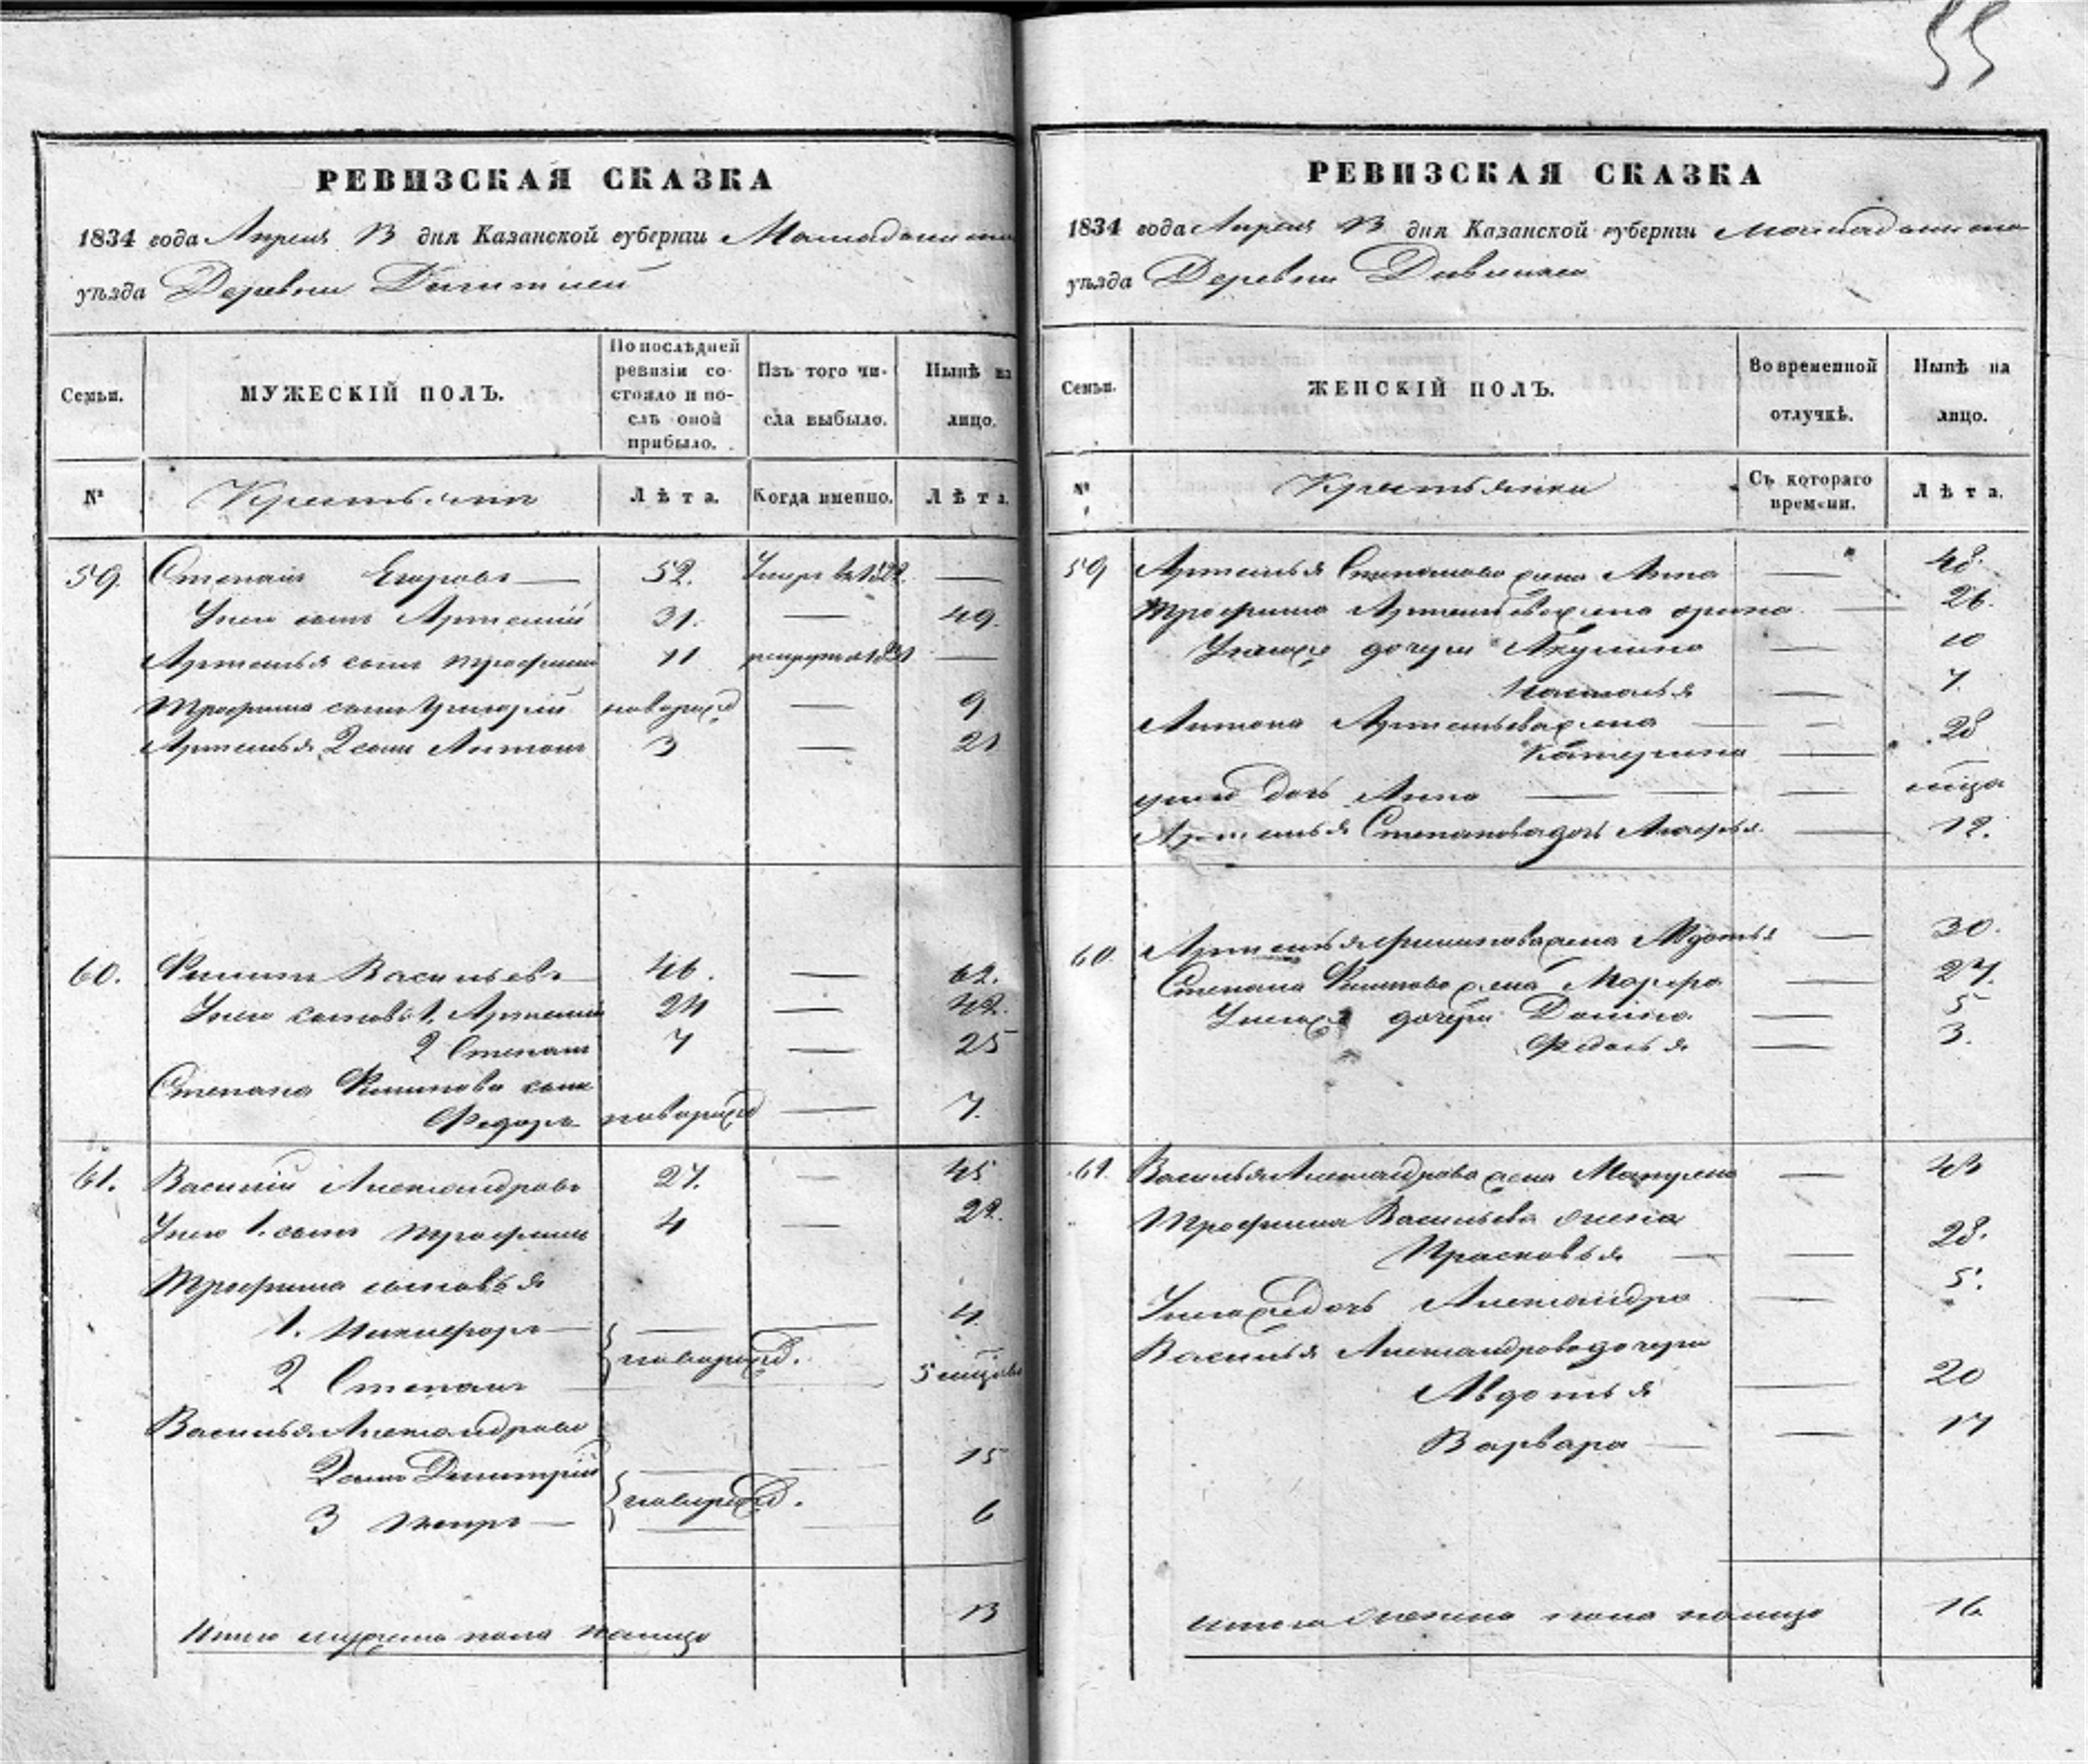 55
РЕВИЗСКАЯ СКАЗКА
1834 года Апреля 13 дня Казанской губернии Мамадышска
уѣзда Деревни
Семьи. МУЖЕСКІЙ ПОЛЪ. По послѣдней ревизіи состояло и послѣ оной прибыло. Изъ того числа выбыло. Нынѣ на лицо.
№ Крестьяне Лѣта. Когда именно. Лѣта.
59. Степанъ Егоровъ — 52. Умеръ въ —
У него сынъ Артемій 31. — 49.
Артемья сынъ Трофимъ 11 —
Трофима сынъ Григорій новорожд — 9
Артемья 2 сынъ Антонъ 3 — 21
60. Филипъ Васильевъ — 46. — 62.
У него сыновья 1. Артемій 24 — 42.
2 Степанъ 7 — 25
Степана Филипова сынъ
Федоръ новорожд — 7.
61. Василій Александровъ 27. — 45
У него 1. сынъ Трофимъ 4 — 22.
Трофима сыновья
1. Никифоръ — 4
2 Степанъ новорожд. 5 мцовъ
Василья Александрова
2 сынъ Димитрій 15
3 Петръ — новорожд. 6
Итого мужеска пола на лицо 13
РЕВИЗСКАЯ СКАЗКА
1834 года Апреля 13 дня Казанской губернии Мамадышска
уѣзда Деревни
Семьи. ЖЕНСКІЙ ПОЛЪ. Во временной отлучкѣ. Нынѣ на лицо.
№ Крестьянки Съ котораго времени. Лѣта.
59 Артемья Степанова жена Анна — 48.
Трофима Артемьева жена Орина — 26.
У нихъ дочери Акулина — 10
Наталья — 7.
Антона Артемьева жена — 28
Катерина —
у него дочь Анна — — — мца
Артемья Степанова дочь Марья — 12.
60. Артемья Филипова жена Авдотья — 30.
Степана Филипова жена Марфа — 27.
У нихъ дочери Домна — 5
Федосья — 3.
61. Василья Александрова жена — 43
Трофима Васильева жена
Прасковья — — 28.
У нихъ дочь Александра — 5.
Василья Александрова дочери
Авдотья — 20
Варвара — — 17
итого женска пола на лицо 16